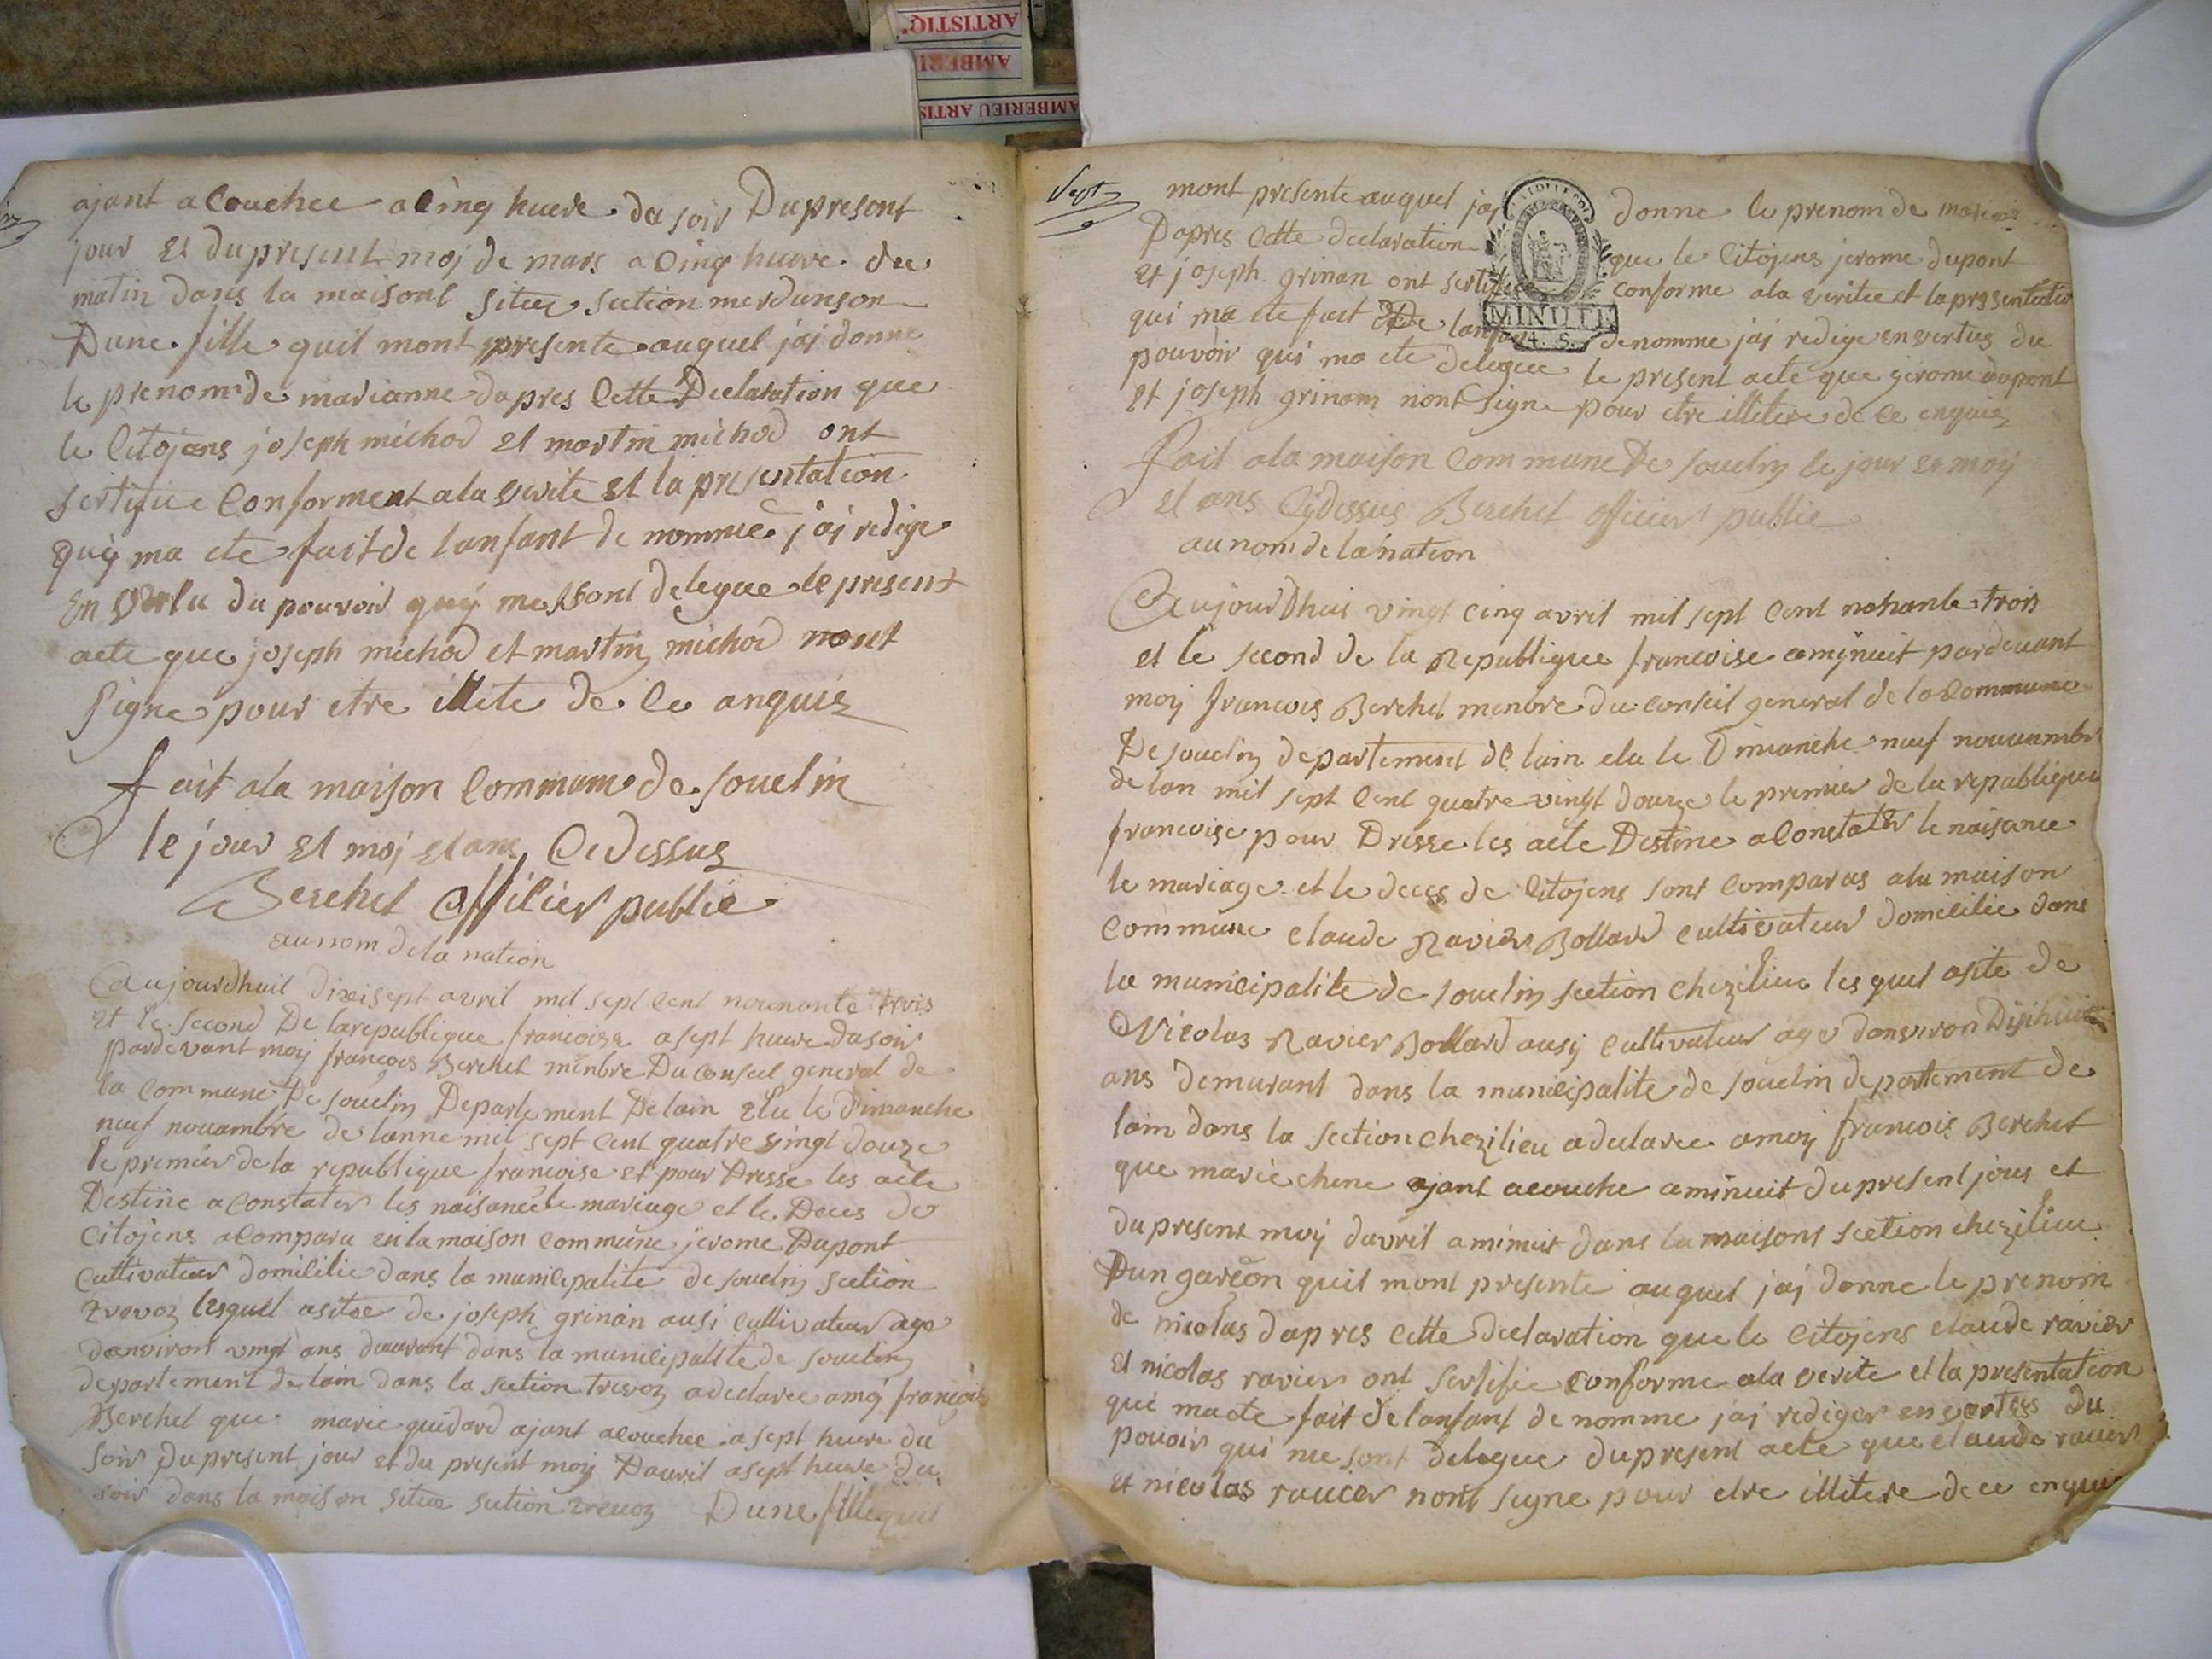 ARTISTIQ'
AMBERI
AMBERIEU ARTIS
ajant a Couchee a Cinq heure du soir Dupresent
jour et du present moj de mars a Cinq heure du
matin dans la maisont situe section merdanson
Dune fille quil mont presente auquel jaj donne
le prenom de marianne dapres Cette Declaration que
le Citojens joseph michod et martin michod ont
sertifiee Conforment ala verite et la presentation
quÿ ma ete fait de lanfant de nommee jaj redige
En vertu du pouvoir quÿ me sont delegue le present
acte que joseph michod et martin michod nont
signe pour etre illite de Ce anquis
fait ala maison Commune de souclin
le jour et moj et ans Cidessus
Berchet officier public
au nom de la nation
aujourdhuil dixisept avril mil sept Cent nounante trois
et le second De larepublique francoise a sept heure dasoir
pardevant moÿ francois Berchet menbre Du Conseil general de
la Commune De souclin Departement Delain elu le dimanche
neuf nouambre de lanne mil sept Cent quatre vingt douze
le premier de la republique francoise et pour Dresse les acte
Destine a Constater les naisance le mariage et le Deces de
Citojens a Comparu en la maison Commune jerome Dupont
Cultivateur domicilie dans la municipalite de souclin section
trevoz lesquel asitee de joseph grinan ausi Cultivateur age
danviron vingt ans dmurant dans la municipalite de souclin
departement de lain dans la section trevoz a declaree amoÿ francois
Berchet que marie guidard ajant acouchee a sept heure du
soir Dupresent jour et du present moÿ Davril a sept heure du
soir dans la maison situe section trevoz Dune fille quil
Sept
mont presente auquel jaj donne le prenom de marie
Dapres Cette declaration que le Citojens jerome dupont
et joseph grinan ont sertifie conforme ala veritee et la presentatio
qui ma ete fait De lanfant denomme jaj redige en vertus du
pouvoir qui ma ete delegue le present acte que jerome dupont
et joseph grinan nont signe pour etre illitere de Ce enquis
MINUTE
4. S.
fait ala maison Commune De souclin le jour et moÿ
et ans Cÿdessus Berchet officier public
au nom de la nation
aujourdhui vingt cinq avril mil sept Cent nonante trois
et le second de la Republique francoise aminuit pardevant
moÿ francois Berchet menbre du Conseil general de la Commune
De souclin departement de lain elu le Dimanche neuf nouanmbr
de lan mil sept Cent quatre vingt douze le premier de la republique
francoise pour Dresse les acte Destine a Constater le naisance
le mariage et le deces de Citojens sont Comparus ala maison
Commune claude Ravier Bollard cultivateur domicilie dans
la municipalite de souclin section chezilieu les quel asite de
Nicolas Ravier Bollard ausÿ cultivateur age danviron Dixhuit
ans demurant dans la municipalite de souclin departement de
lain dans la section chezilieu a declaree amoÿ francois Berchet
que marie chene ajant acouche aminuit du present jour et
du present moÿ davril aminuit dans la maisont section chezilieu
Dun garcon quil mont presente auquel jaj donne le prenom
de nicolas dapres Cette declaration que le Citojens claude ravier
et nicolas ravier ont sertifie Conforme ala verite et la presentation
qui ma ete fait de lanfant de nomme jaj rediger en vertus du
pouoir qui me sont delegue dupresent acte que claude ravier
et nicolas ravier nont signe pour etre illitere de ce enqui